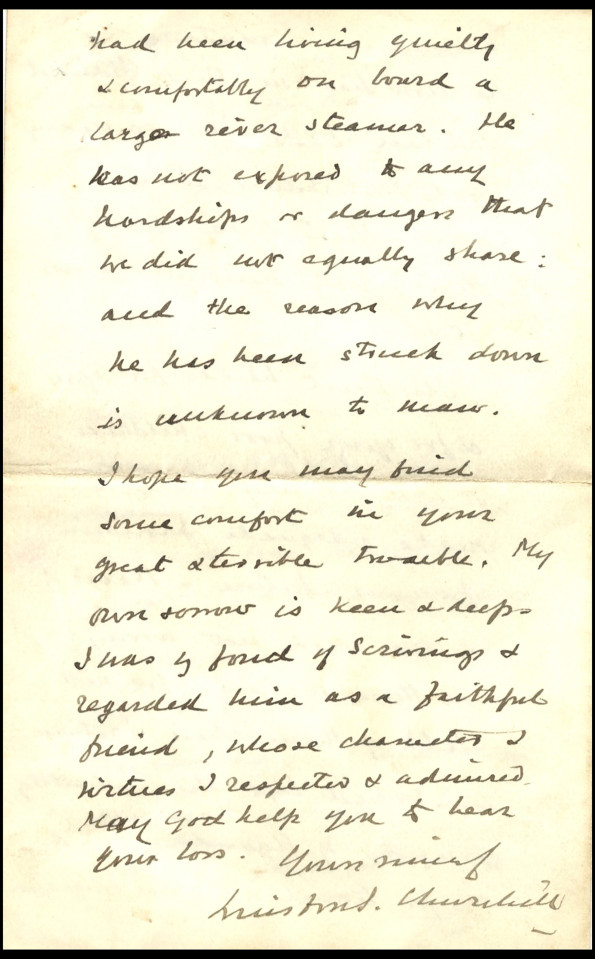 had been living quietly
& comfortably on board a
large river steamer. He
was not exposed to any
hardships or dangers that
we did not equally share:
and the reason why
he has been struck down
is unknown to man.
I hope you may find
some comfort in your
great & terrible trouble. My
own sorrow is keen & deep.
I was fond of Scrivings &
regarded him as a faithful
friend, whose character &
virtues I respected & admired.
May God help you to bear
your loss. Yours
Winston S. Churchill